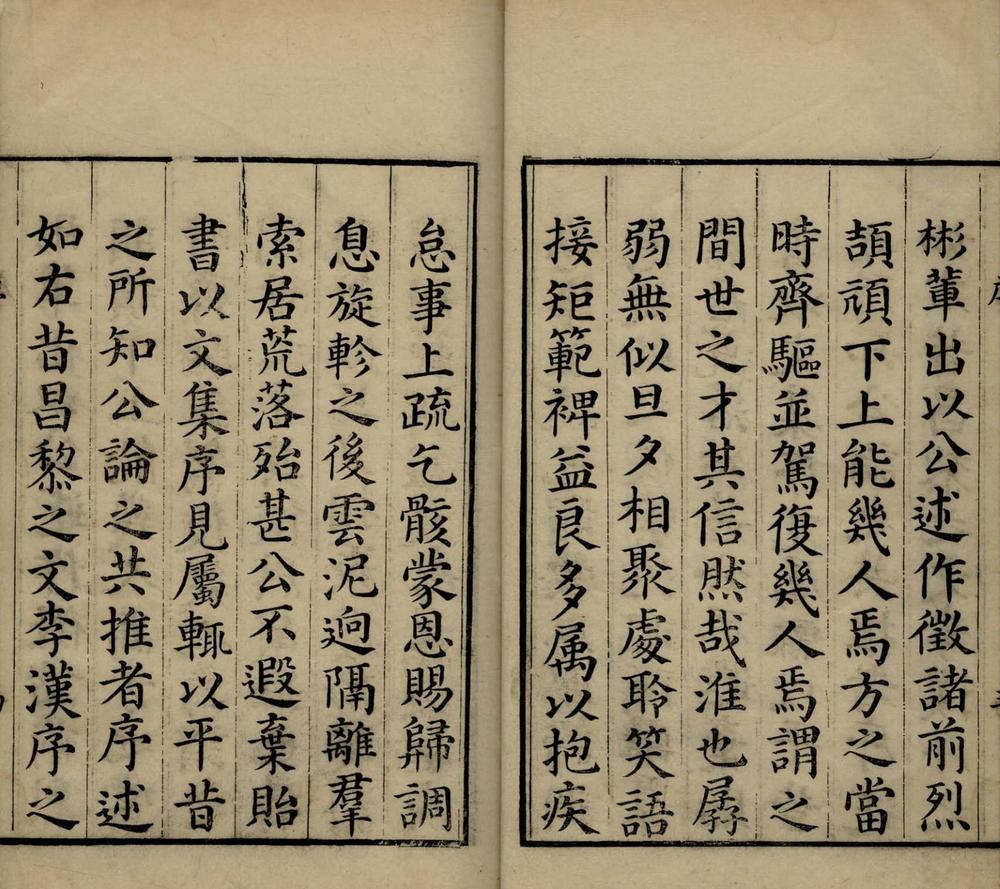 彬輩出以公述作徵諸前烈
頡頏下上能幾人焉方之當
時齊驅並駕復幾人焉謂之
間世之才其信然哉淮也孱
弱無似旦夕相聚處聆笑語
接矩範裨益良多属以抱疾
怠事上疏乞骸蒙恩賜歸調
息旋軫之後雲泥逈隔離羣
索居荒落殆甚公不遐棄貽
書以文集序見屬輒以平昔
之所知公論之共推者序述
如右昔昌黎之文李漢序之